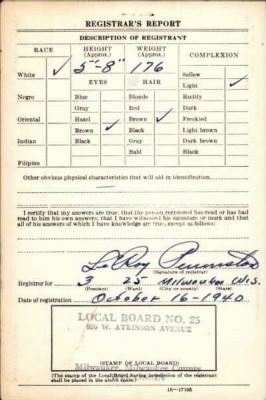 REGISTRAR'S REPORT
DESCRIPTION OF REGISTRANT
RACE HEIGHT (Approx.) WEIGHT (Approx.) COMPLEXION
White ✓ 5-8" 176 Sallow
EYES HAIR Light ✓
Negro Blue Blonde Ruddy
Gray Red Dark
Oriental Hazel Brown ✓ Freckled
Brown ✓ Black Light brown
Indian Black Gray Dark brown
Bald Black
Filipino
Other obvious physical characteristics that will aid in identification
I certify that my answers are true; that the person registered has read or has had
read to him his own answers; that I have witnessed his signature or mark and that
all of his answers of which I have knowledge are true, except as follows:
LeRoy
(Signature of registrar)
Registrar for 3 25 Milwaukee Wis.
(Precinct) (Ward) (City or county) (State)
Date of registration October 16-1940
LOCAL BOARD NO. 25
W. ATKINSON AVENUE
Milwaukee, Milwaukee County
(STAMP OF LOCAL BOARD)
(The stamp of the Local Board having jurisdiction of the registrant
shall be placed in the above space.)